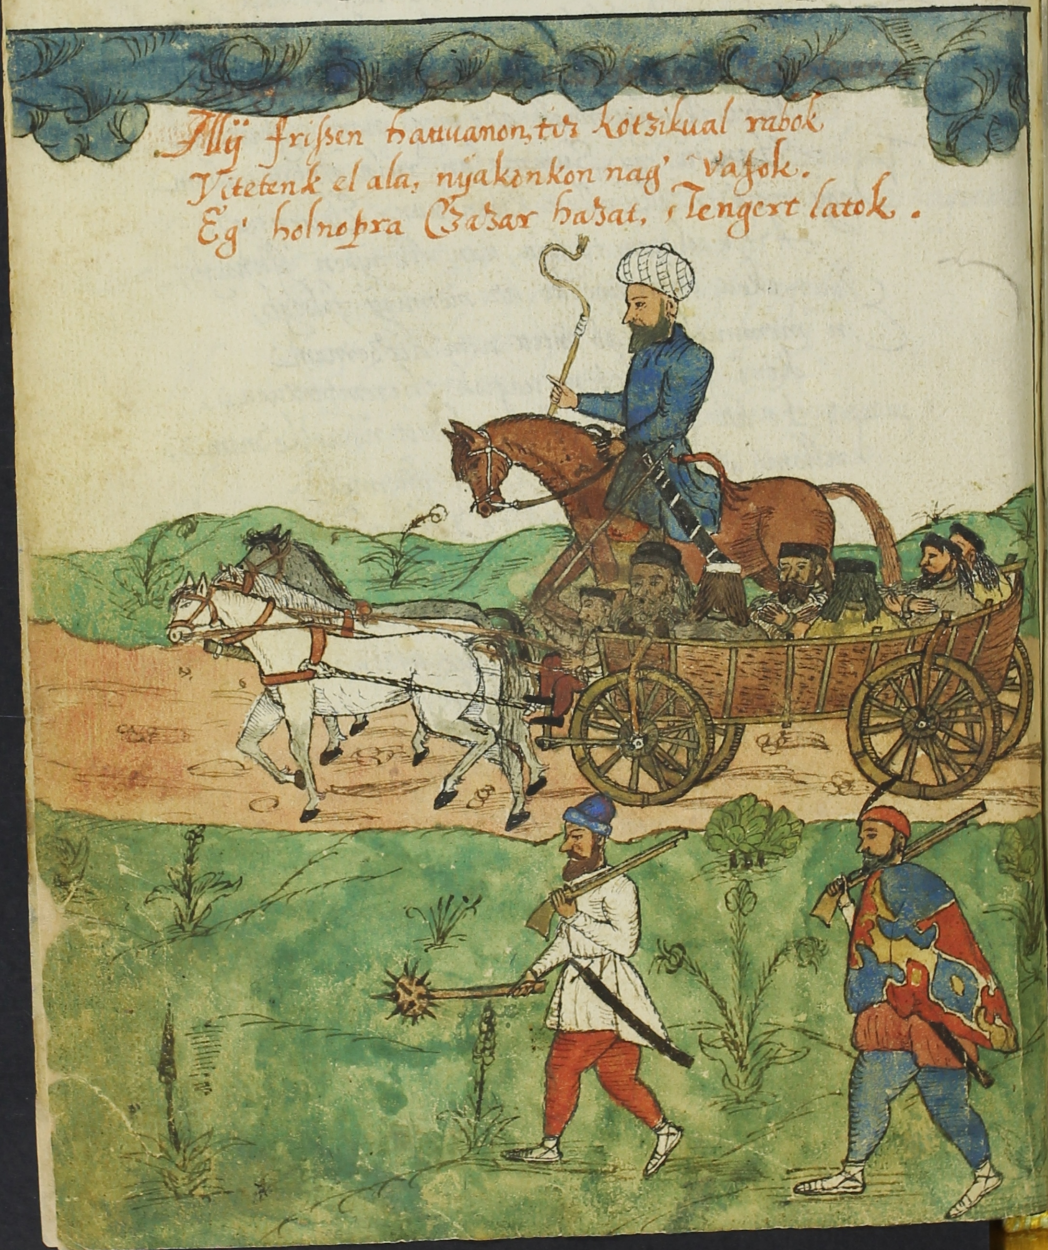 Illÿ frißen hattuanon, tiz kotzikual rabok
Vitetenk el ala, nÿakonkon nag' vaſok.
Eg' holnopra Czaʒar haʒat, Tengert latok.